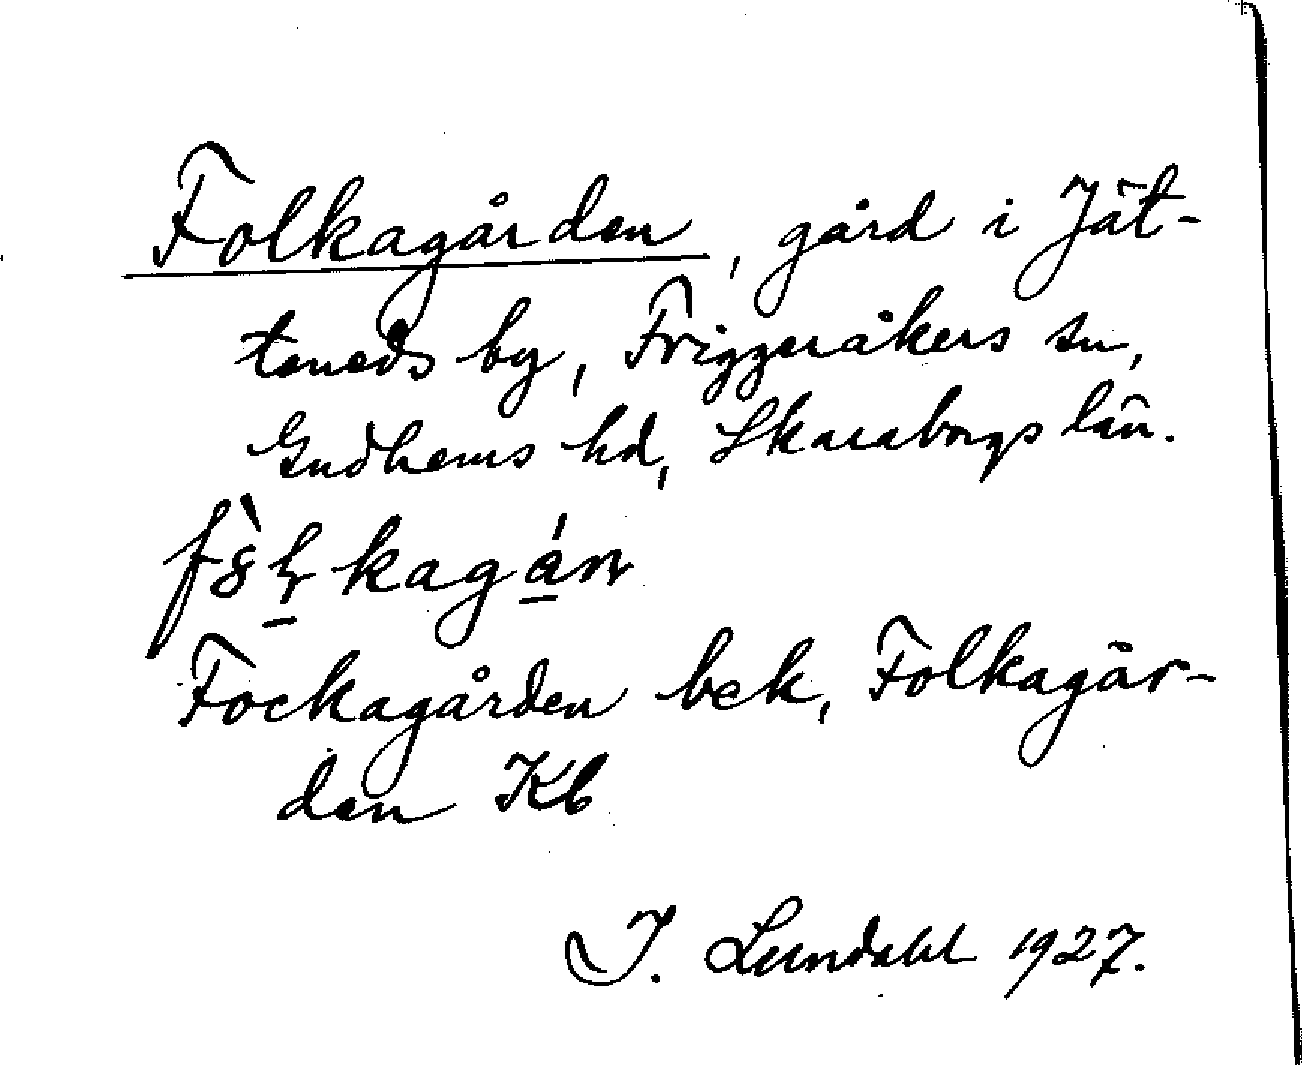 Folkagården, gård i Jät-
teneds by, Friggeråkers sn,
Gudhems hd, Skaraborgs län.
kagán
Fockagården bek, Folkagår-
den Kb
I. Lundahl 1927.